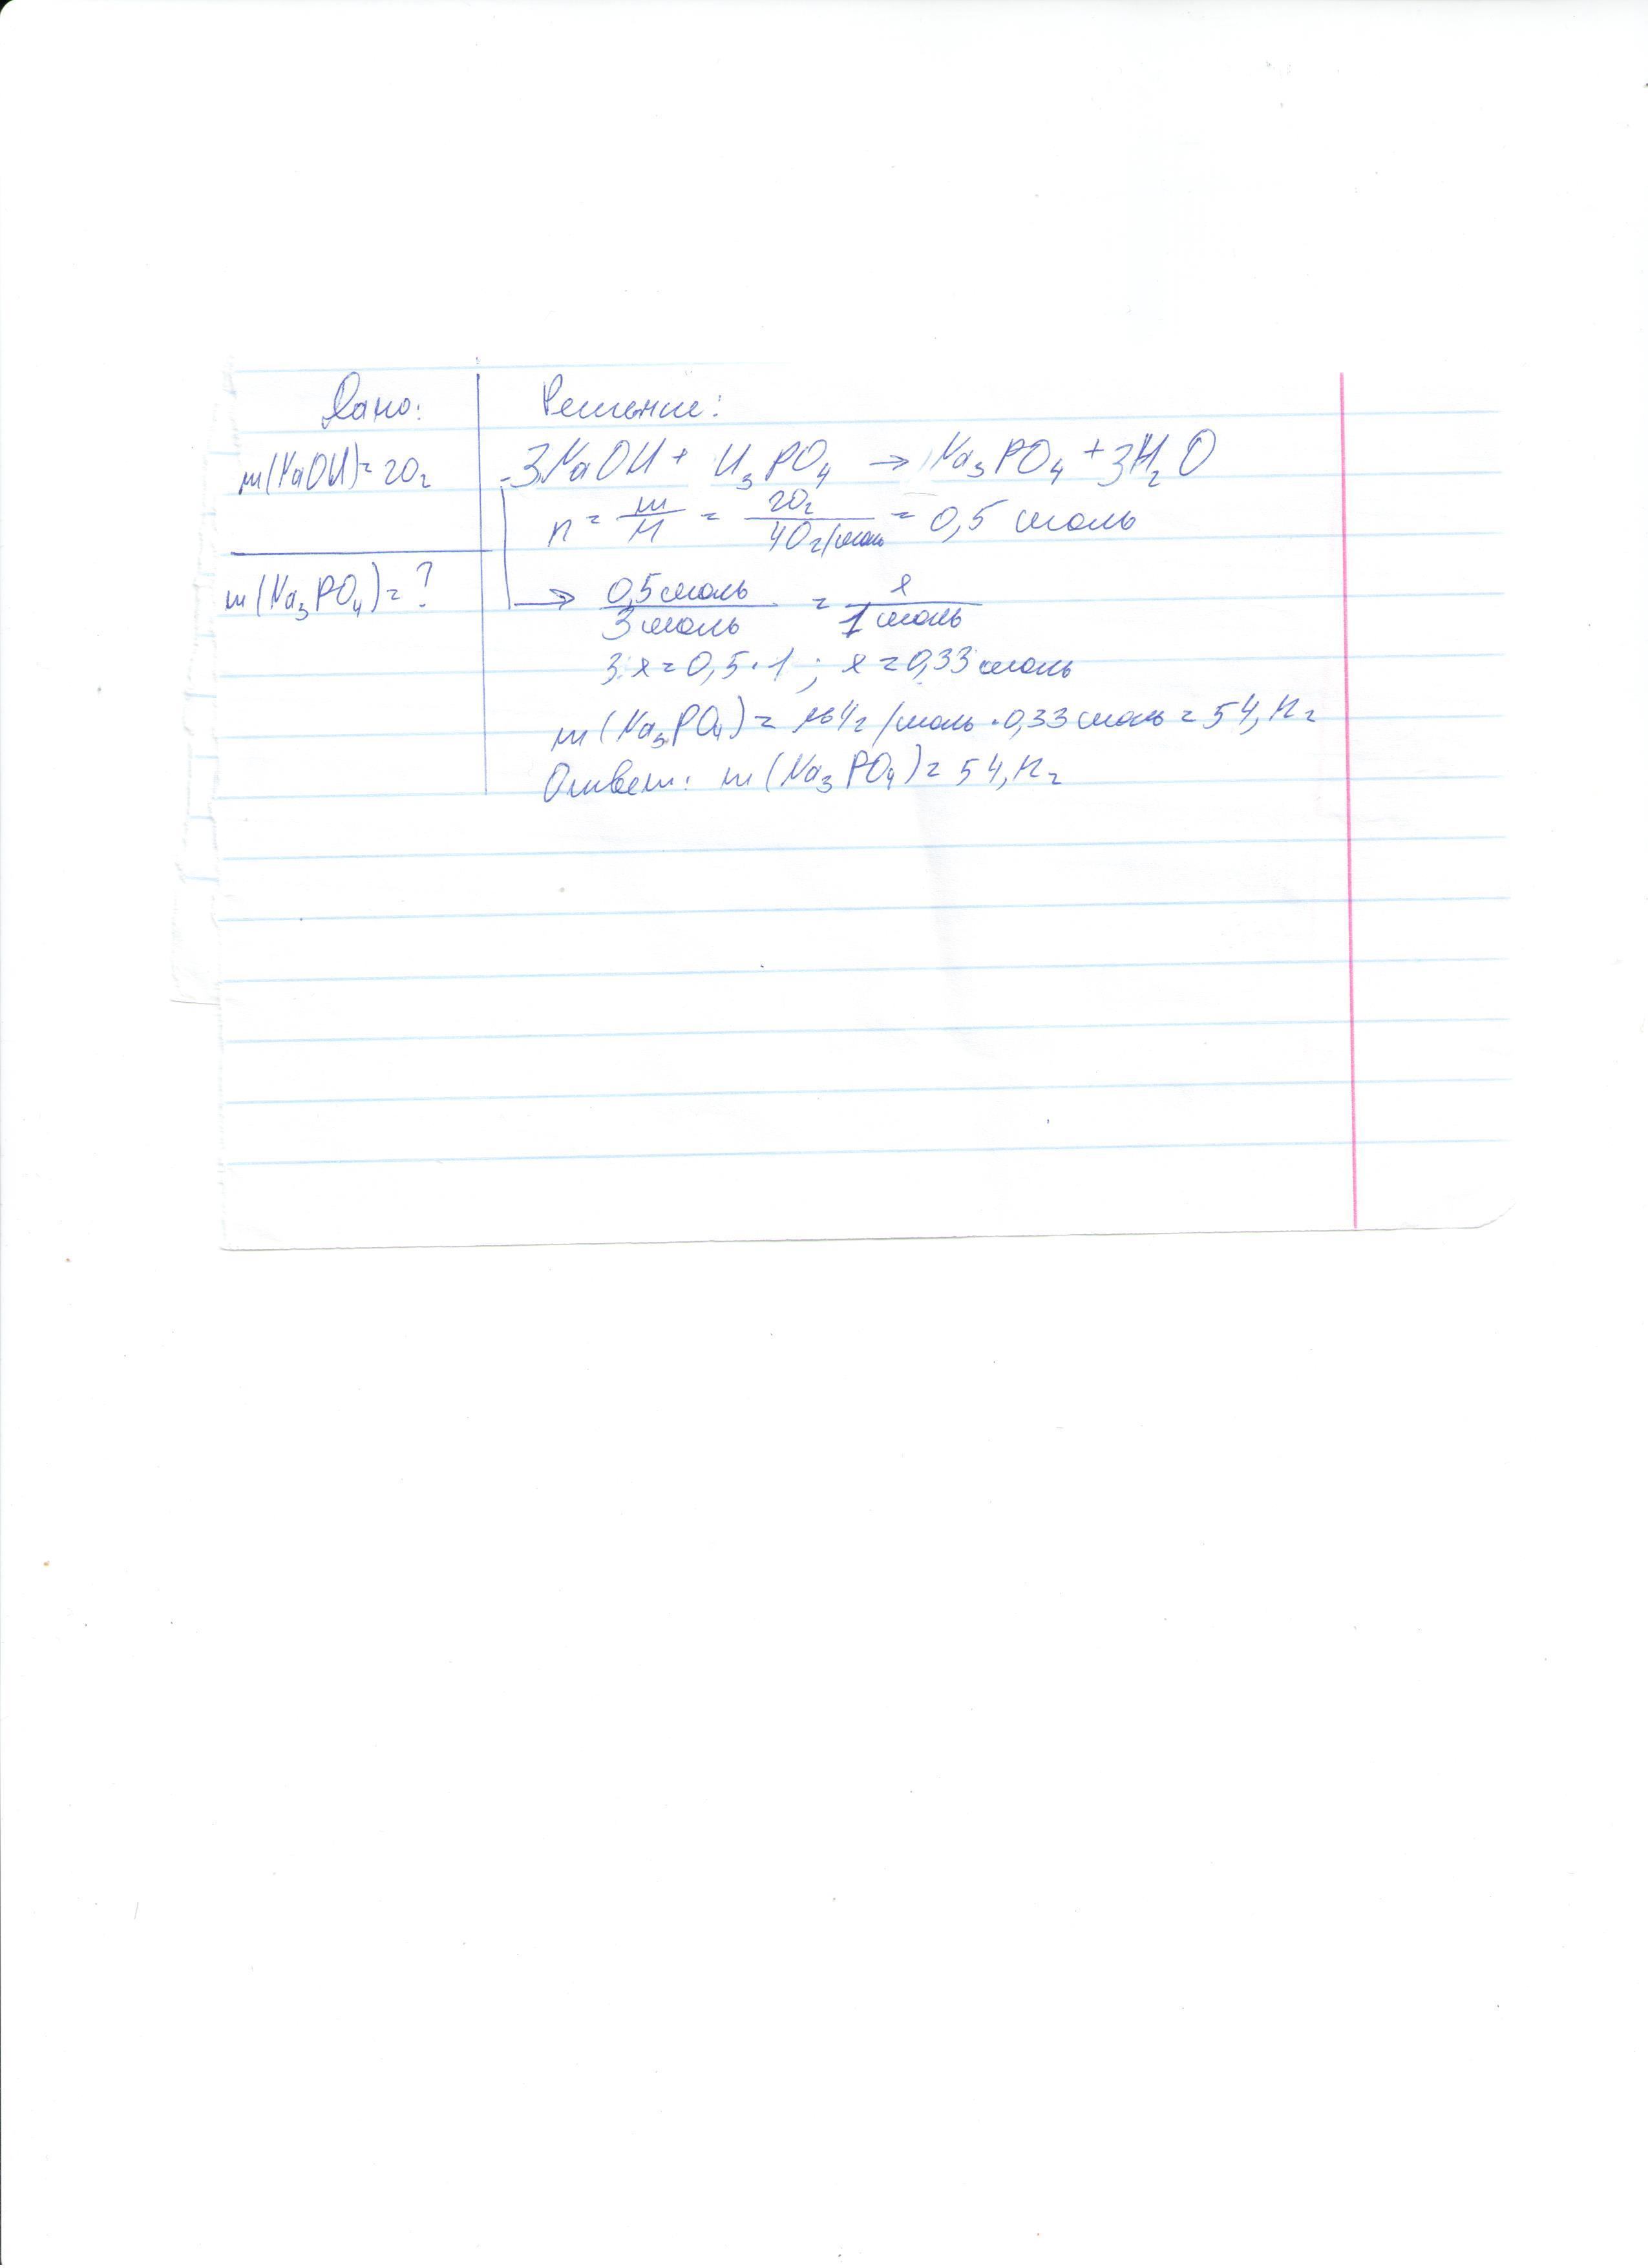 Дано:
m(NaOH)=20г
m(Na₃PO₄)=?
Решение:
3NaOH + H₃PO₄ → Na₃PO₄ + 3H₂O
n = m/M = 20г/40г/моль = 0,5 моль
→ 0,5 моль/3 моль = x/1 моль
3x=0,5·1; x=0,33 моль
m(Na₃PO₄)=164г/моль·0,33 моль=54,12г
Ответ: m(Na₃PO₄)=54,12г